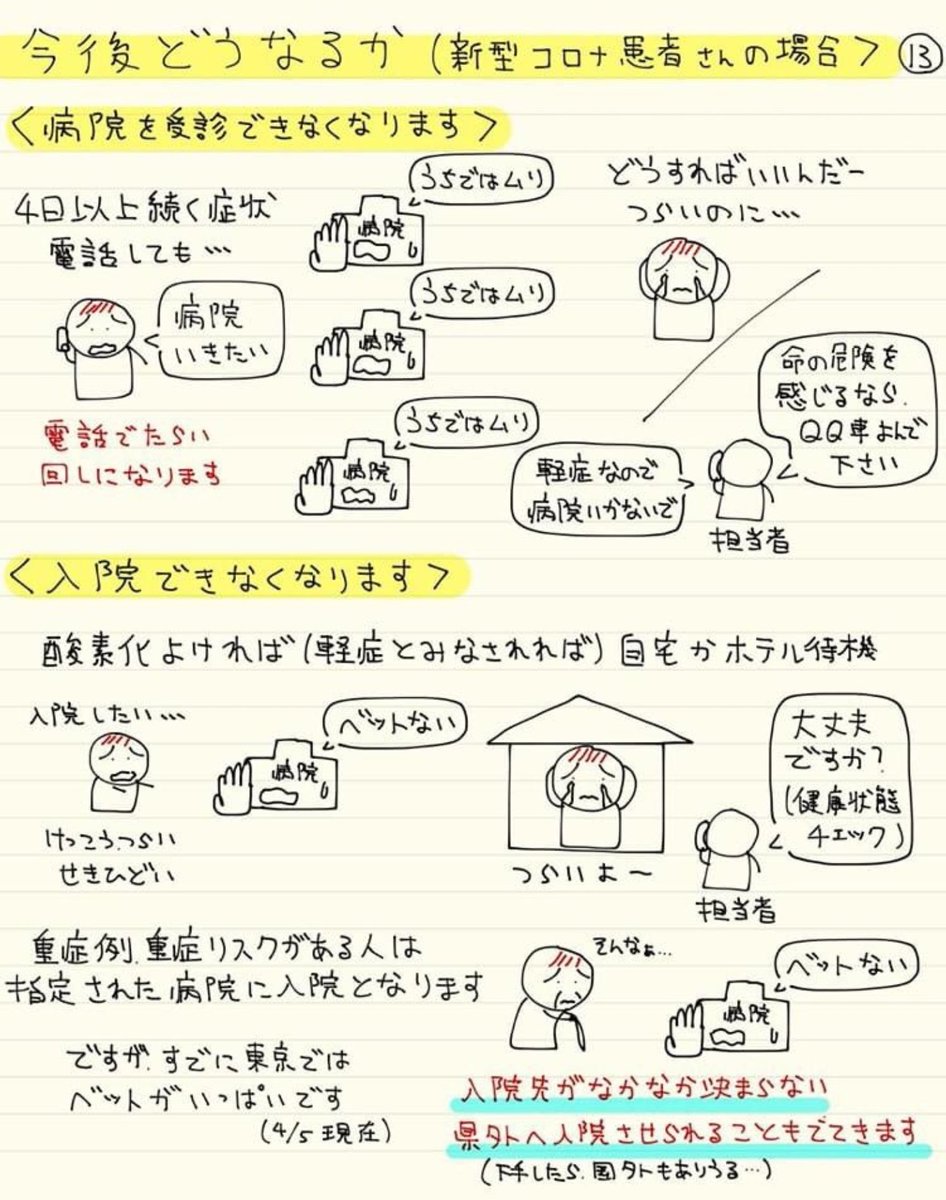 今後どうなるか(新型コロナ患者さんの場合) ⑬
<病院を受診できなくなります>
4日以上続く症状
電話しても…
病院
いきたい
電話でたらい
回しになります
うちではムリ
病院
うちではムリ
病院
うちではムリ
病院
どうすればいいんだー
つらいのに…
命の危険を
感じるなら、
QQ車よんで
下さい
軽症なので
病院いかないで
担当者
<入院できなくなります>
酸素化よければ(軽症とみなされれば)自宅かホテル待機
入院したい…
けっこうつらい
せきひどい
ベットない
病院
つらいよ〜
大丈夫
ですか?
(健康状態
チェック)
担当者
重症例、重症リスクがある人は
指定された病院に入院となります
そんなぁ…
ベットない
病院
ですが、すでに東京では
ベットがいっぱいです
(4/5現在)
入院先がなかなか決まらない
県外へ入院させられることもでてきます
(下手したら、国外もありうる…)